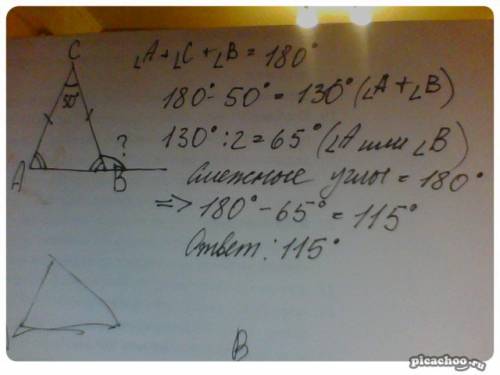 C
50°
A
B
?
∠A+∠C+∠B=180°
180°-50°=130°(∠A+∠B)
130°:2=65°(∠A или ∠B)
Смежные углы=180°
=>180°-65°=115°
Ответ: 115°
B
picachoo.ru